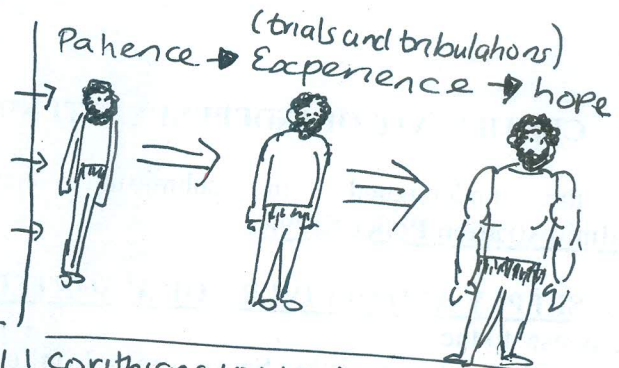 (trials and tribulations)
Patience → Experience → hope